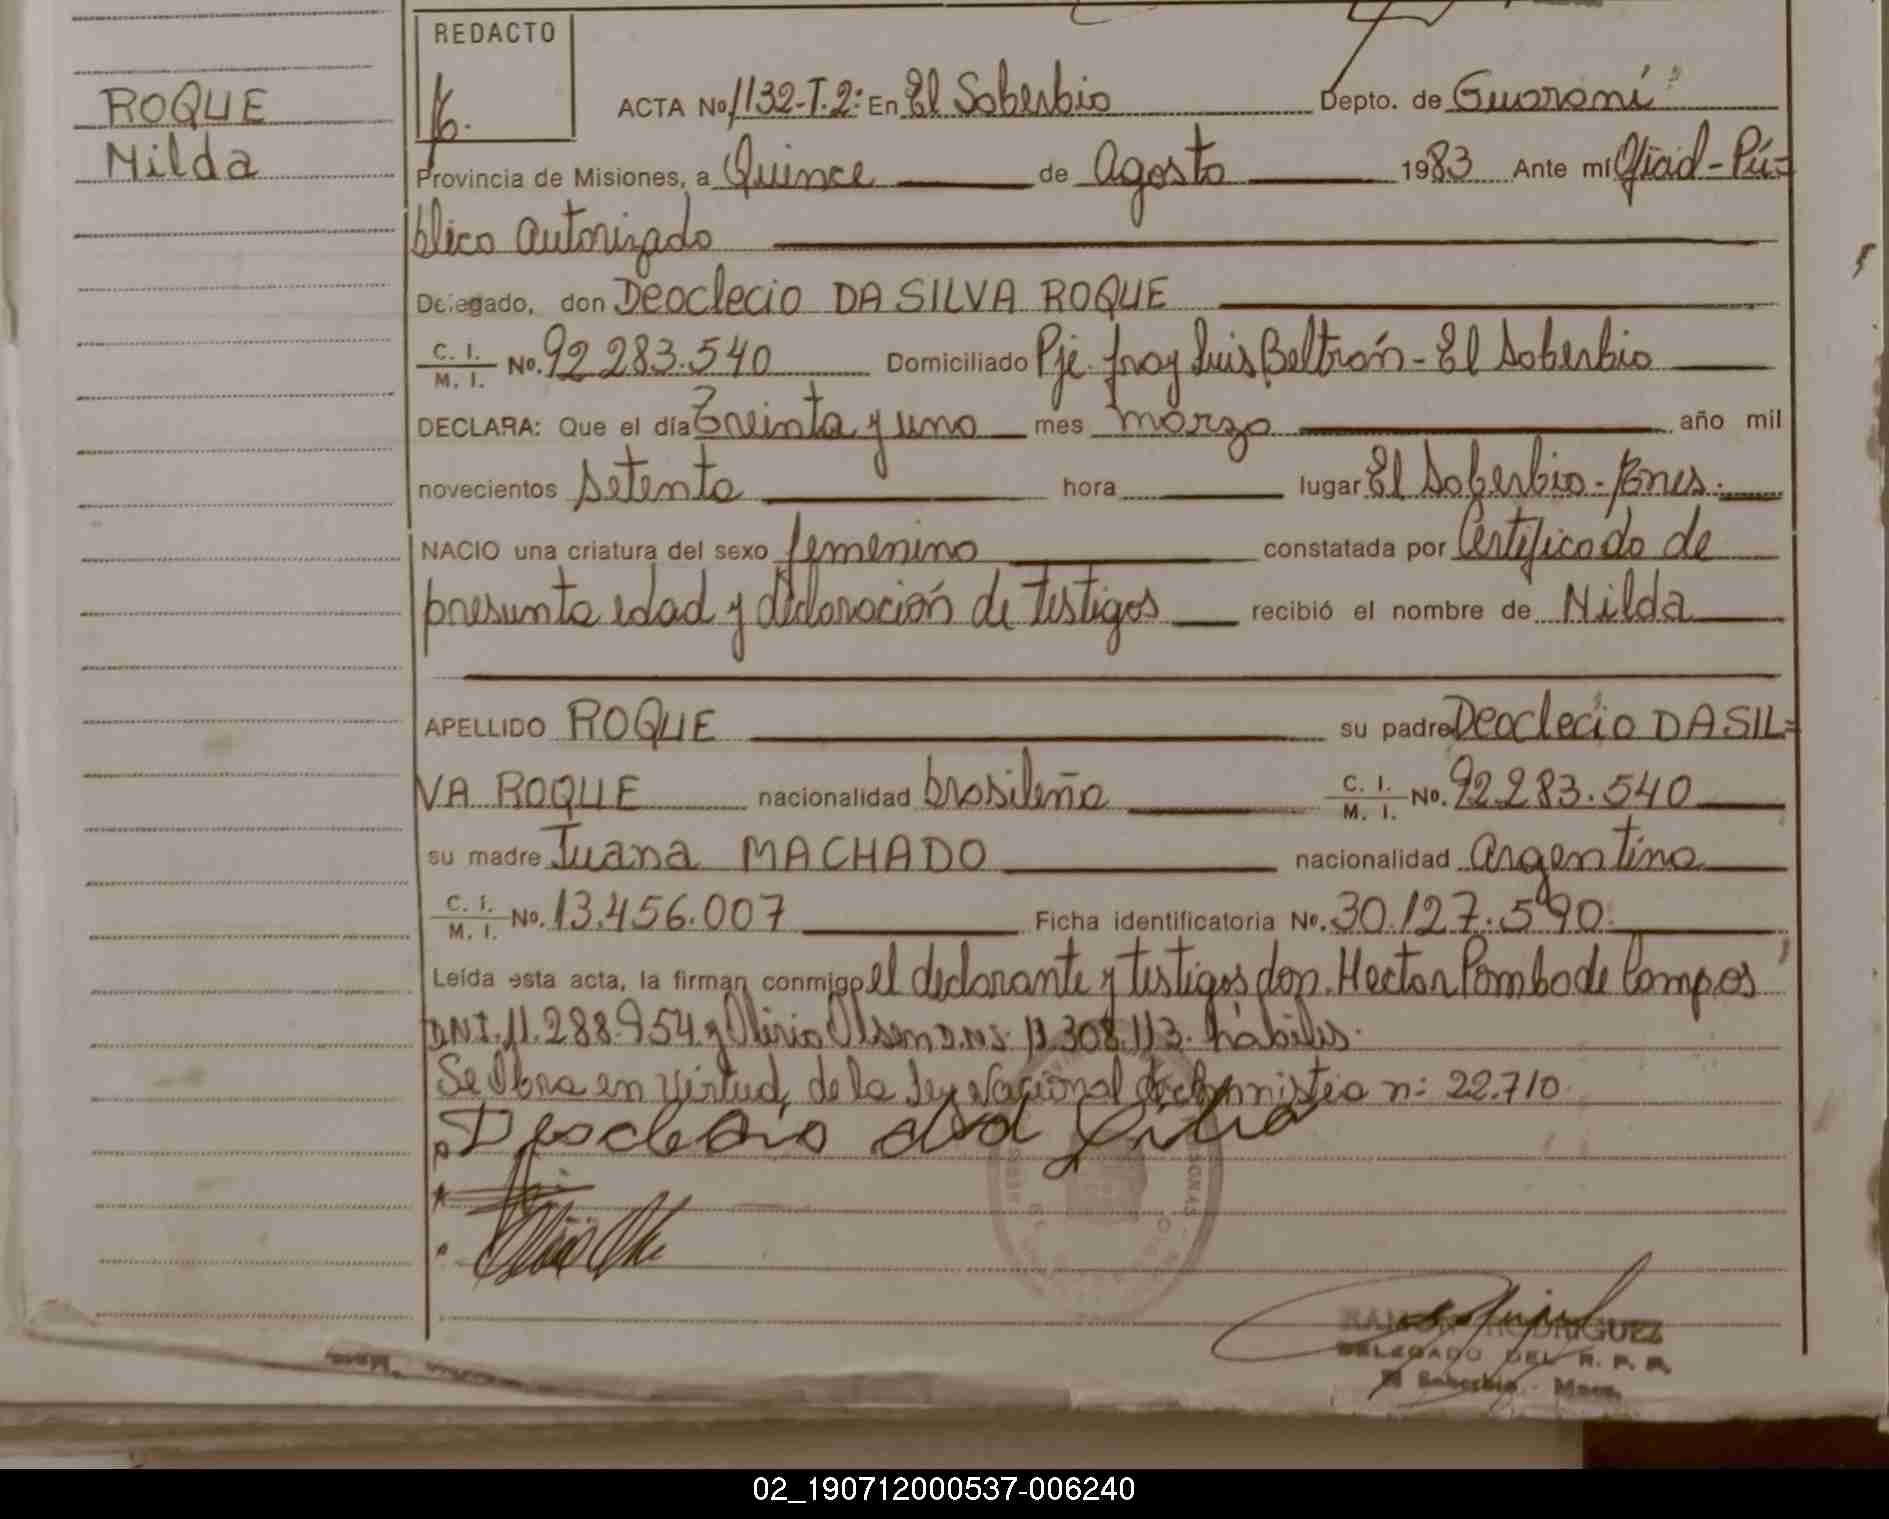 REDACTO
ROQUE
Nilda
ACTA No 1132-T.2: En El Soberbio Depto. de Guaraní
Provincia de Misiones, a Quince de Agosto 1983 Ante mí Ofiad-Pú=
blico autorizado
Delegado, don Deoclecio DA SILVA ROQUE
C. I. / M. I. No. 92.283.540 Domiciliado Pje. fray Luis Beltrán - El Soberbio
DECLARA: Que el día Treinta y uno mes marzo año mil
novecientos Setenta hora lugar El Soberbio-
NACIO una criatura del sexo femenino constatada por Certificado de
presunta edad y declaración de testigos recibió el nombre de Nilda
APELLIDO ROQUE su padre Deoclecio DA SIL=
VA ROQUE nacionalidad brasileña C. I. / M. I. No. 92.283.540
su madre Juana MACHADO nacionalidad argentina
C. I. / M. I. No. 13.456.007 Ficha identificatoria No. 30.127.590.
Leída esta acta, la firman conmigo el declarante y testigos don. Hector Pombo de Campos
DNI. 11.288.954 y Olirio Olsen D.N.I. 308.113. hábiles.
Se Obra en virtud, de la Ley Nacional de Amnistia n: 22.710.
Deoclecio da Silva
RAMON RODRIGUEZ
DELEGADO DEL R. P. P.
El Soberbio - Mnes.
02_190712000537-006240